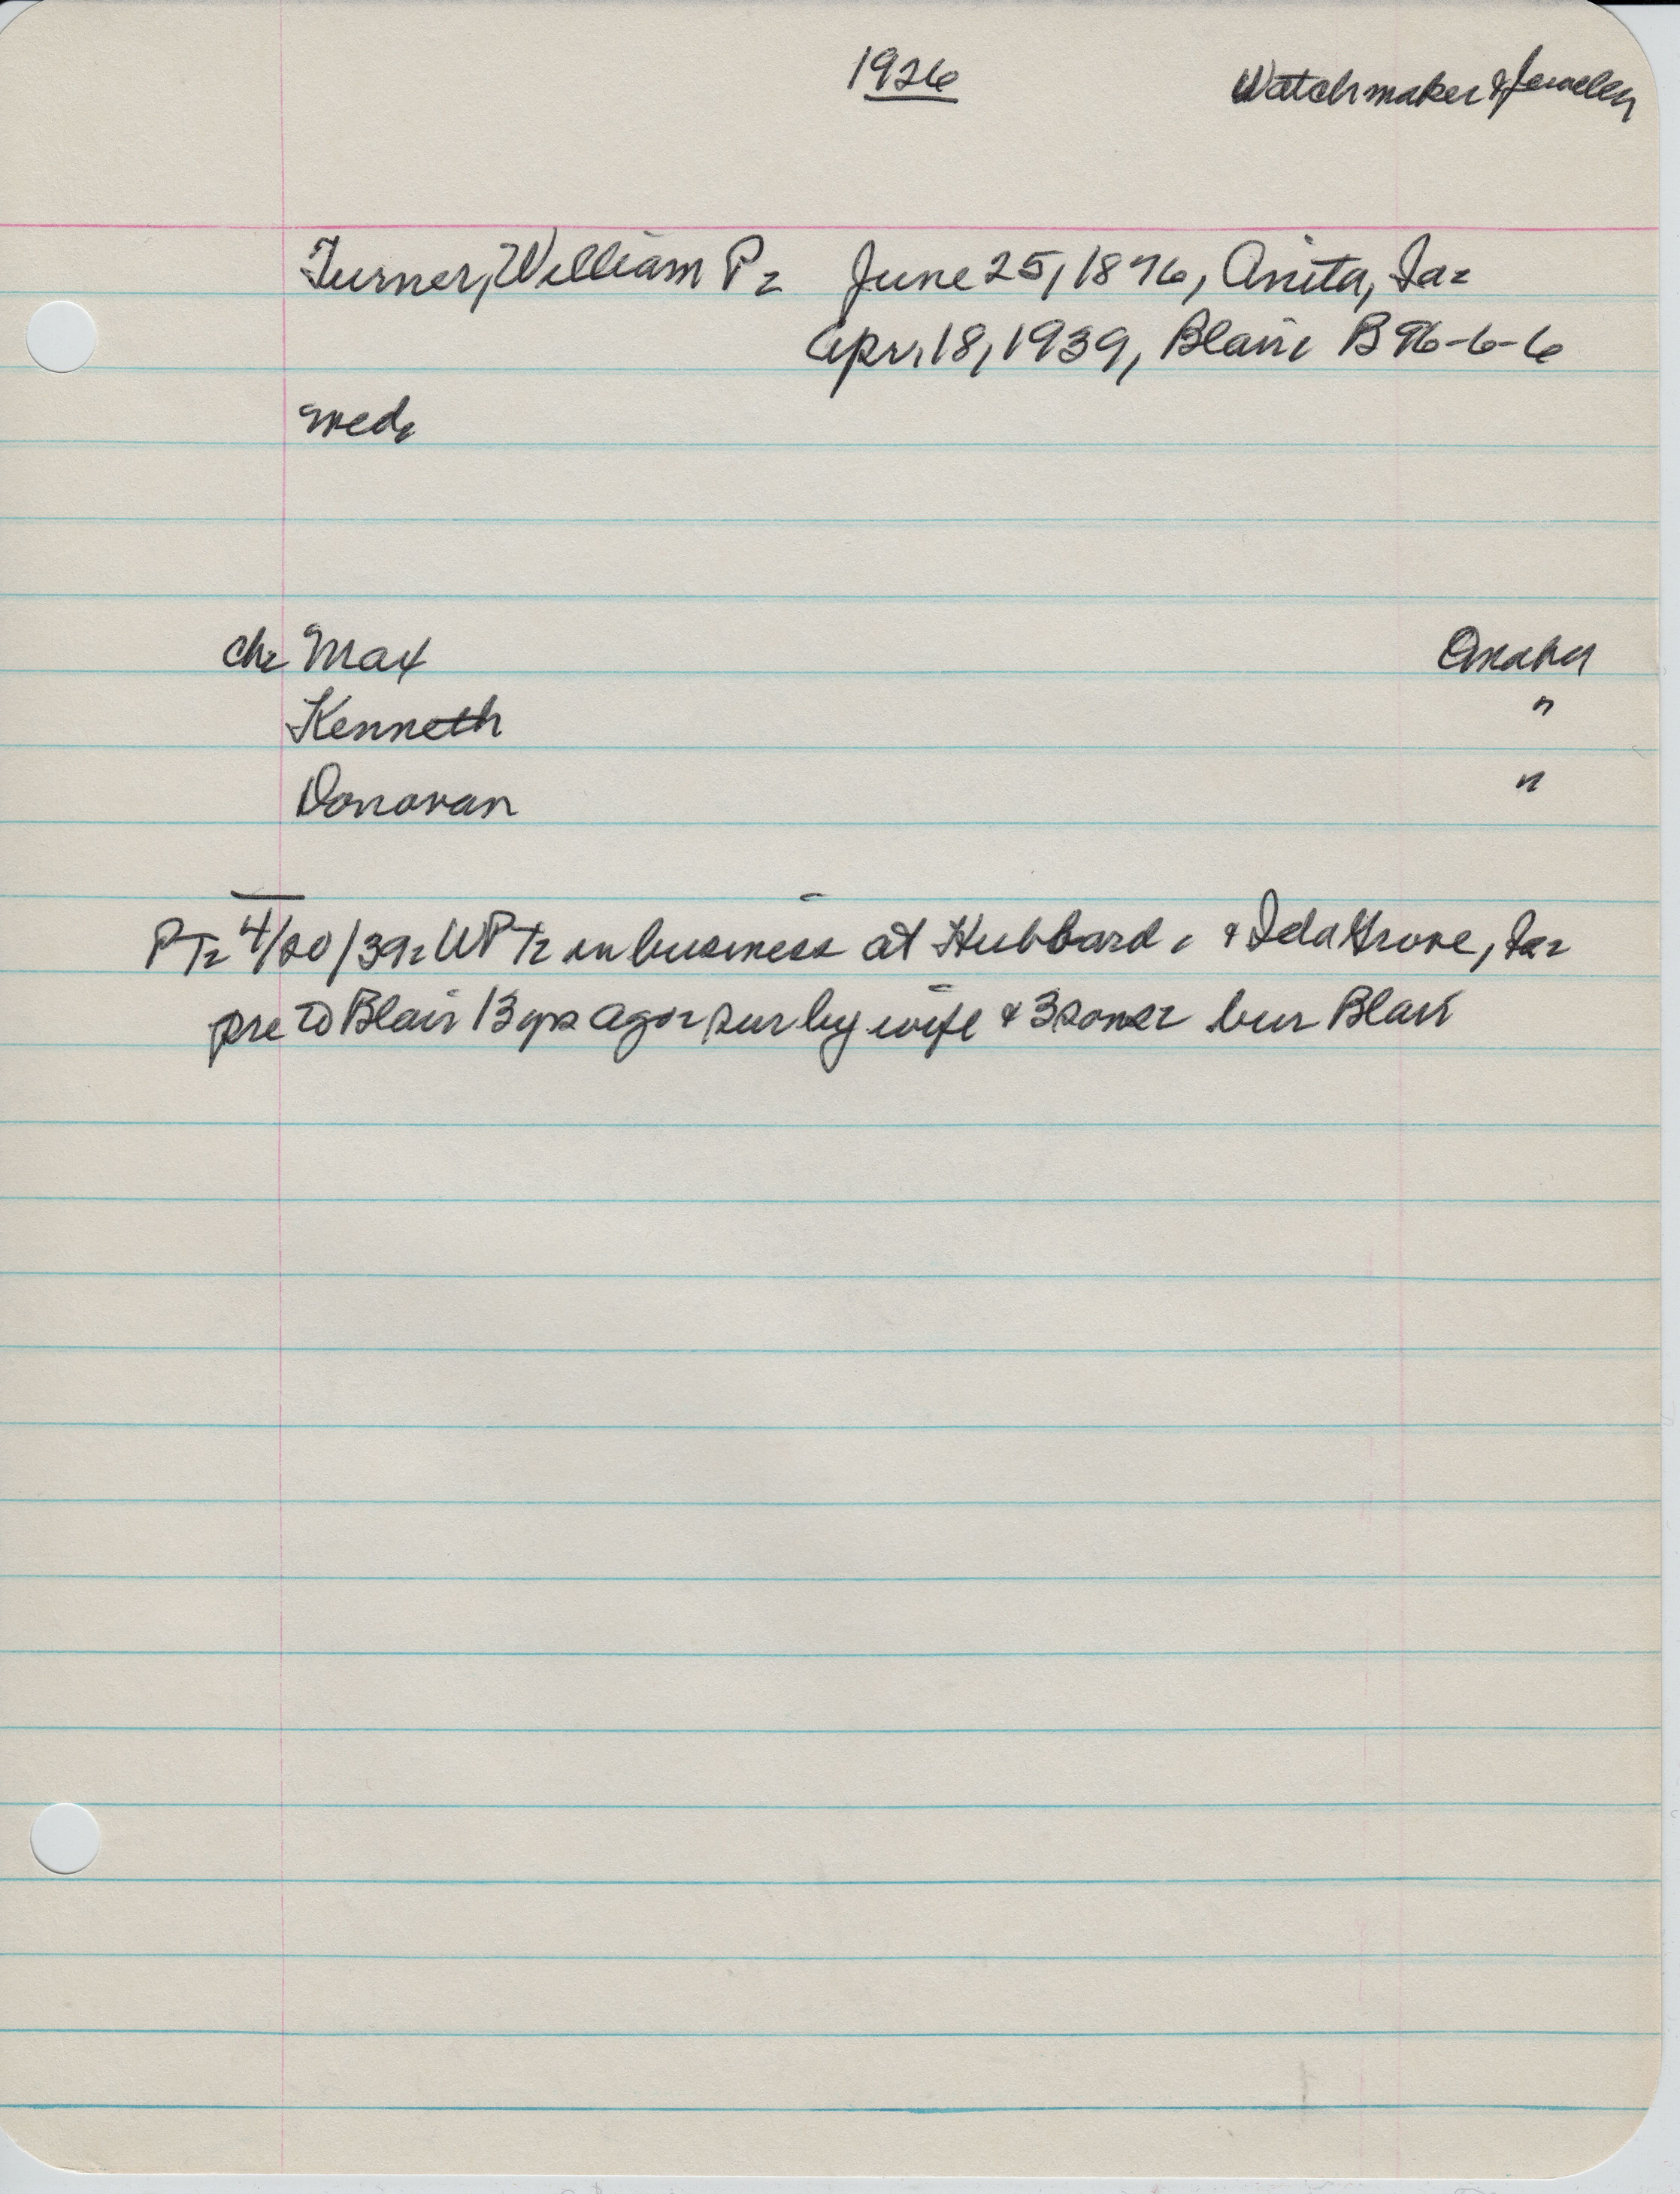 1926 Watchmaker & Jeweler
Turner, William P. June 25, 1876, Anita, Ia.
Apr. 18, 1939, Blair. B 96-6-6
wed.
ch. Max Omaha
Kenneth "
Donovan "
PT. 4/20/39. WPT. in business at Hubbard. & Ida Grove, Ia.
pre to Blair 13 yrs ago. sur by wife & 3 sons. bur Blair